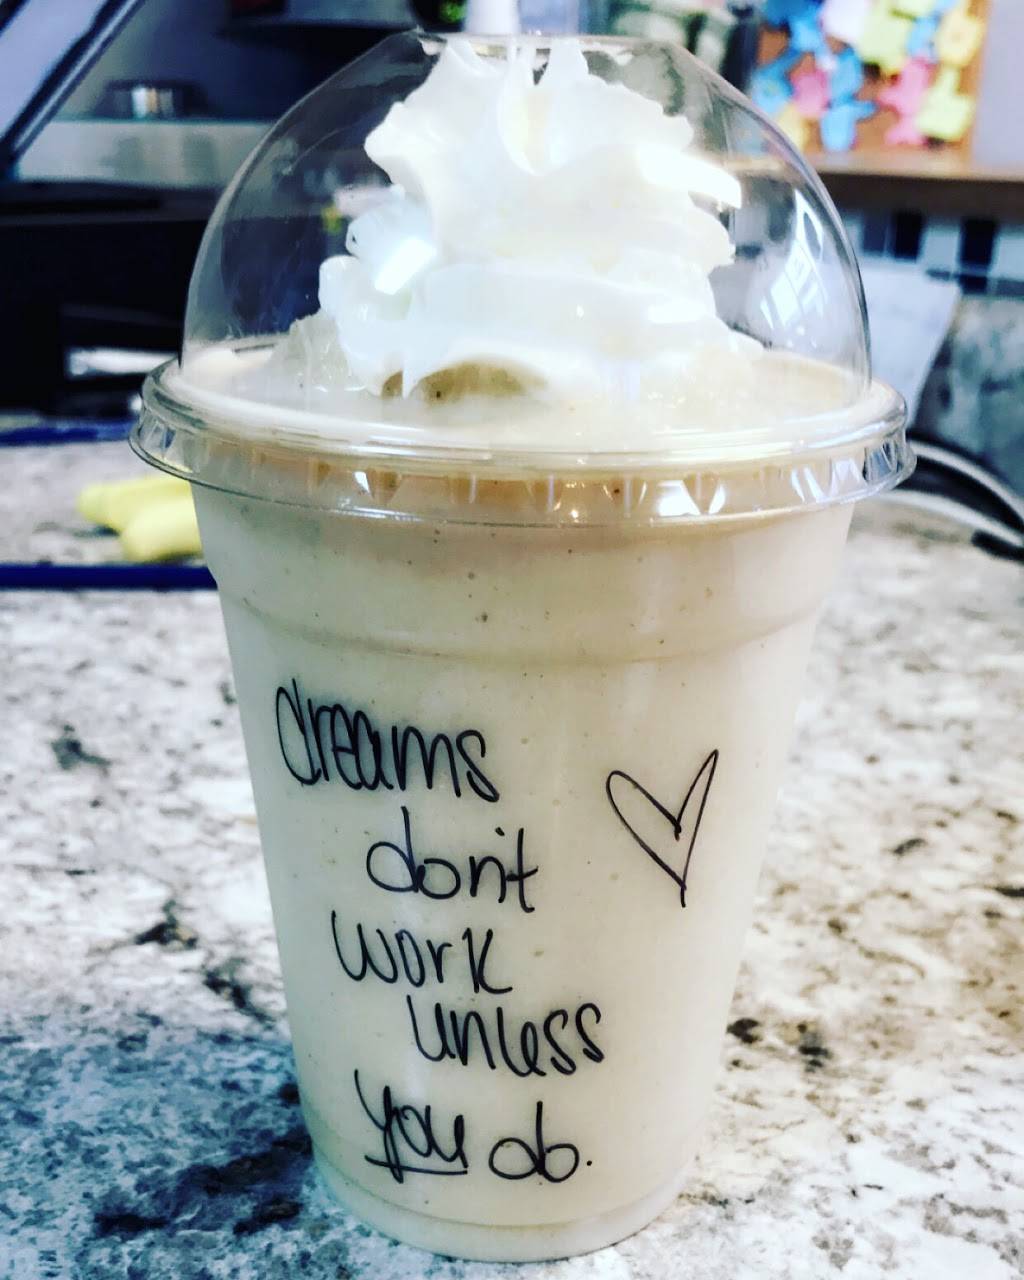 dreams
don't
work
unless
you do.